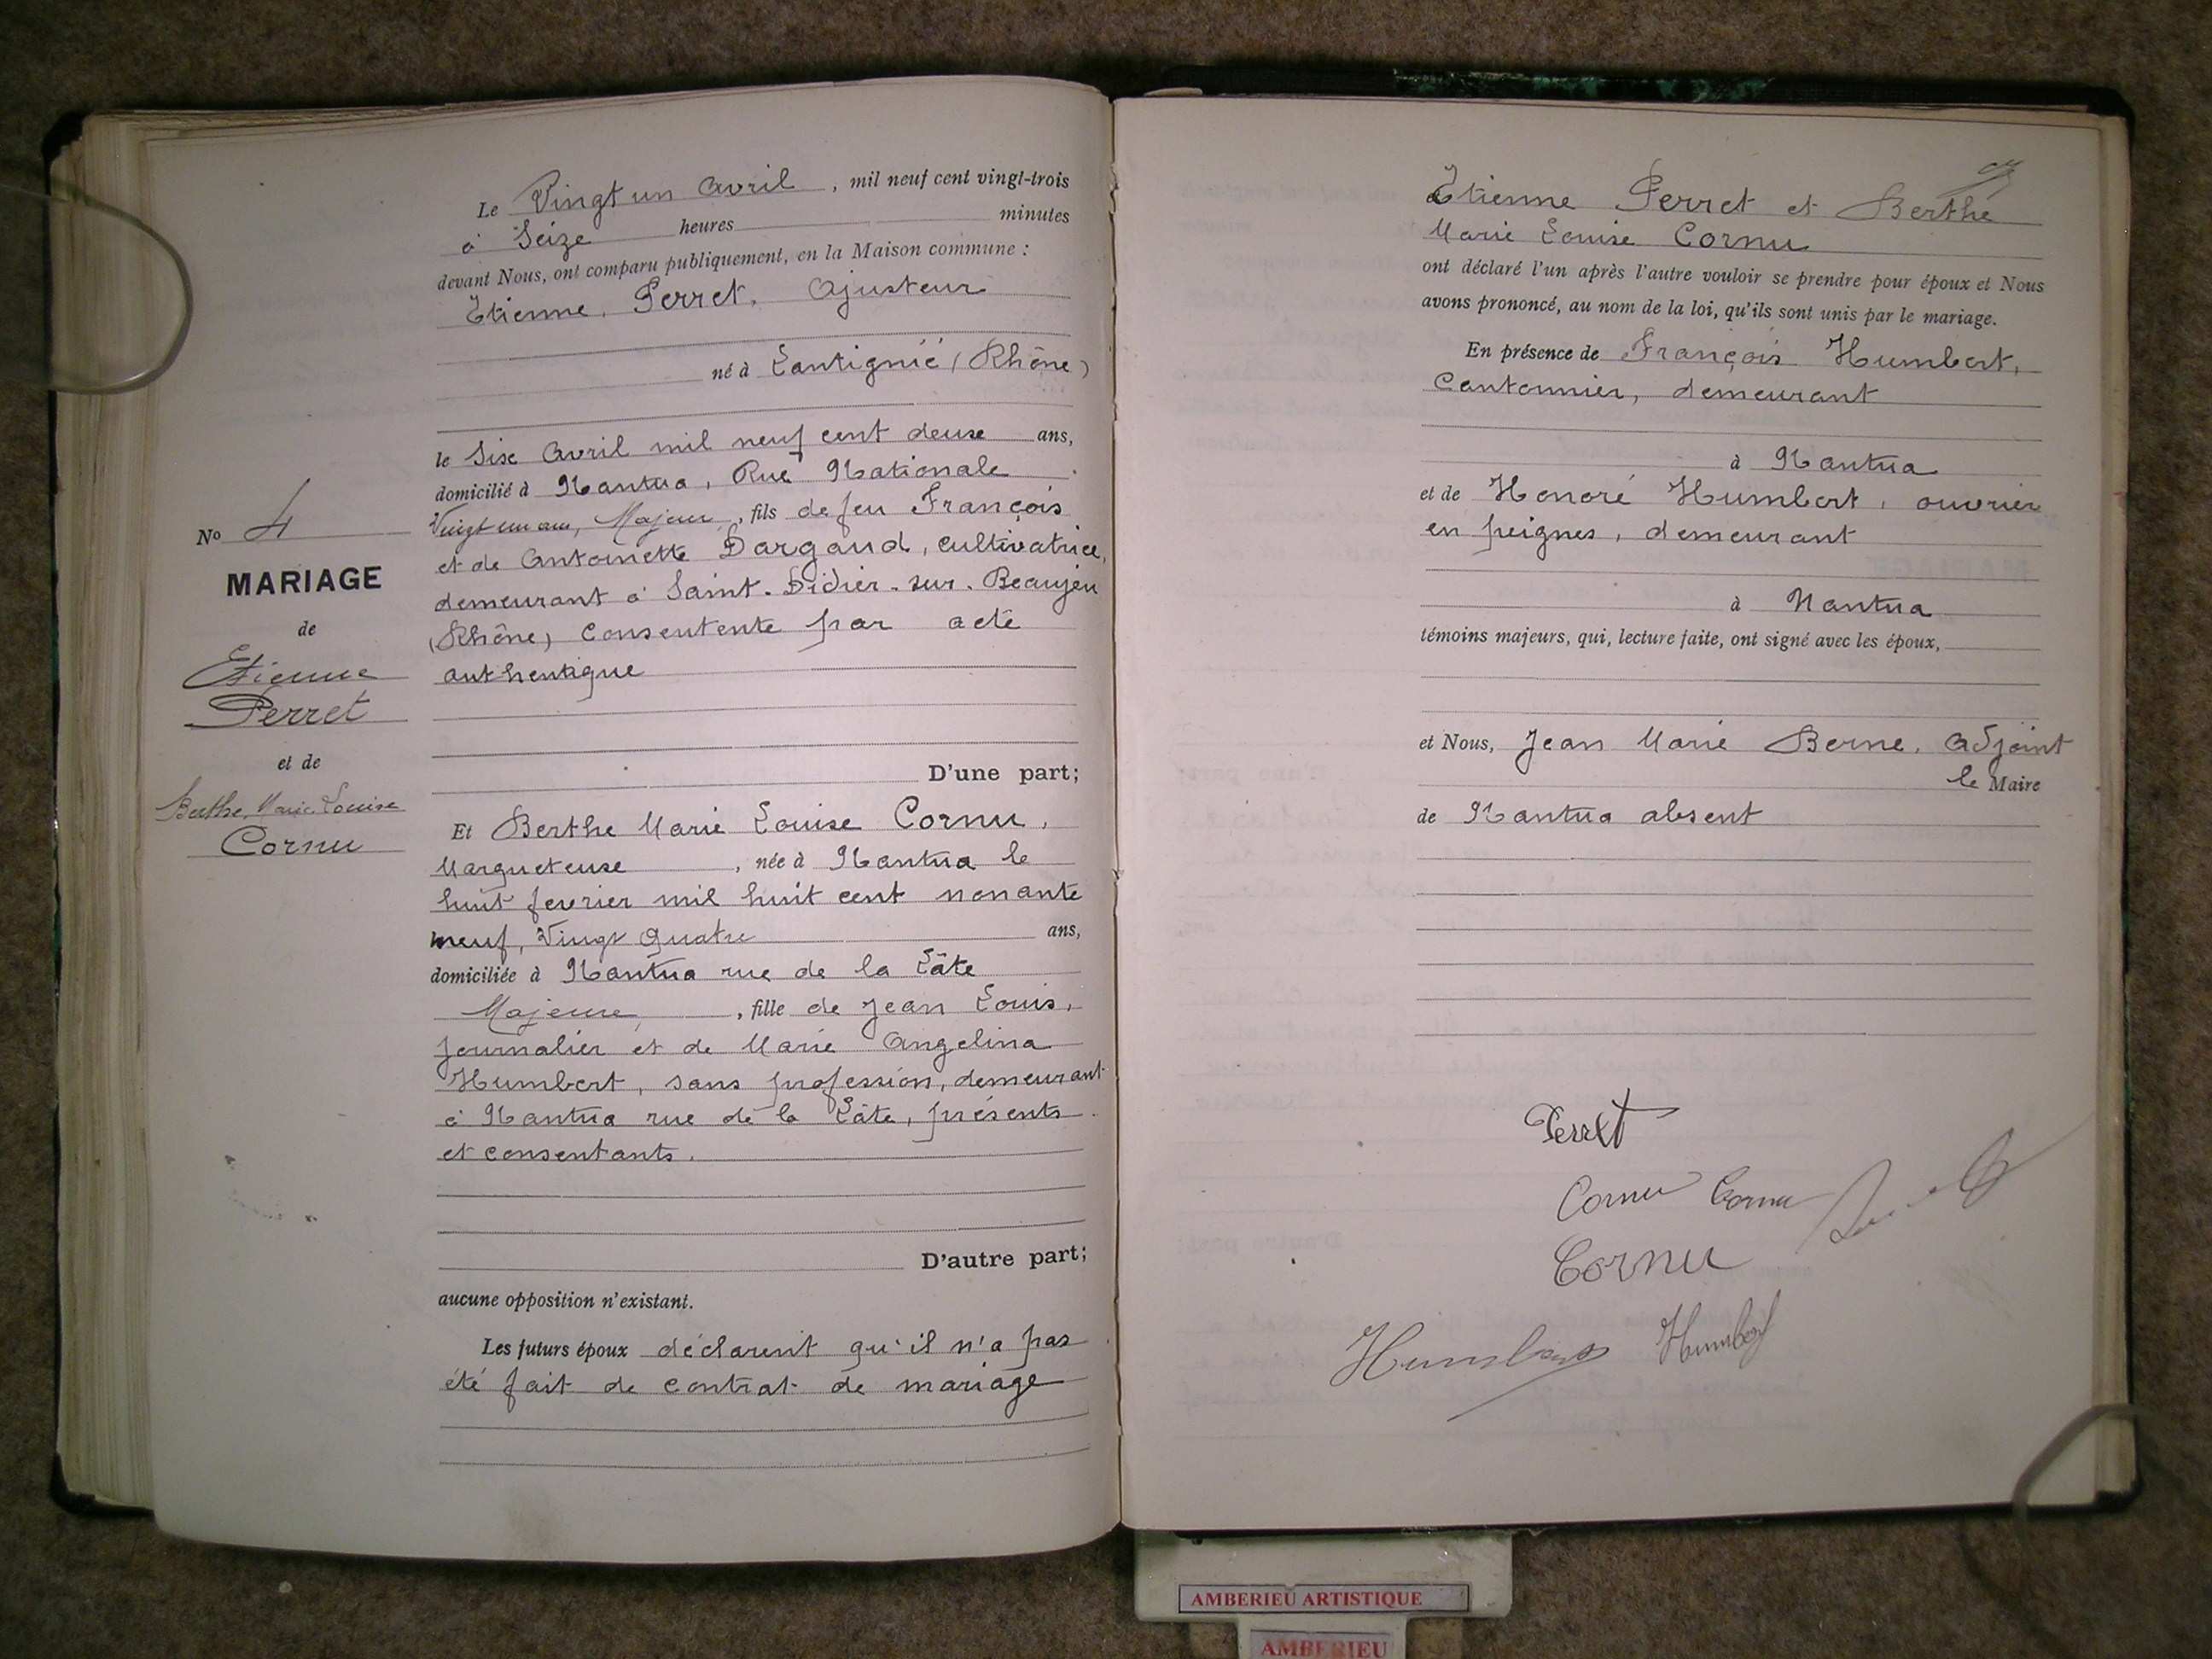 Le Vingt un Avril, mil neuf cent vingt-trois
à Seize heures minutes
devant Nous, ont comparu publiquement, en la Maison commune :
Etienne, Perret, Ajusteur
né à Lantignié (Rhône)
le Six Avril mil neuf cent deux ans,
domicilié à Nantua, Rue Nationale
Vingt un ans, Majeur, fils de feu François
et de Antoinette Dargaud, cultivatrice,
demeurant à Saint-Didier-sur-Beaujeu
(Rhône) Consentente par acte
authentique
D'une part;
No 4
MARIAGE
de
Etienne
Perret
et de
Berthe, Marie, Louise
Cornu
Et Berthe Marie Louise Cornu,
Marqueteuse, née à Nantua le
huit fevrier mil huit cent nonante
neuf, Vingt Quatre ans,
domiciliée à Nantua rue de la Lâte
Majeure, fille de Jean Louis,
Journalier et de Marie Angelina
Humbert, sans profession, demeurant
à Nantua rue de la Lâte, présents
et consentants.
D'autre part;
aucune opposition n'existant.
Les futurs époux déclarent qu'il n'a pas
été fait de contrat de mariage
Etienne Perret et Berthe
Marie Louise Cornu
ont déclaré l'un après l'autre vouloir se prendre pour époux et Nous
avons prononcé, au nom de la loi, qu'ils sont unis par le mariage.
En présence de François Humbert,
Cantonnier, demeurant
à Nantua
et de Honoré Humbert, ouvrier
en peignes, demeurant
à Nantua
témoins majeurs, qui, lecture faite, ont signé avec les époux,
et Nous, Jean Marie Berne, Adjoint
le Maire
de Nantua absent
Perret
Cornu Cornu
Cornu
Humbert Humbert
AMBERIEU ARTISTIQUE
AMBERIEU